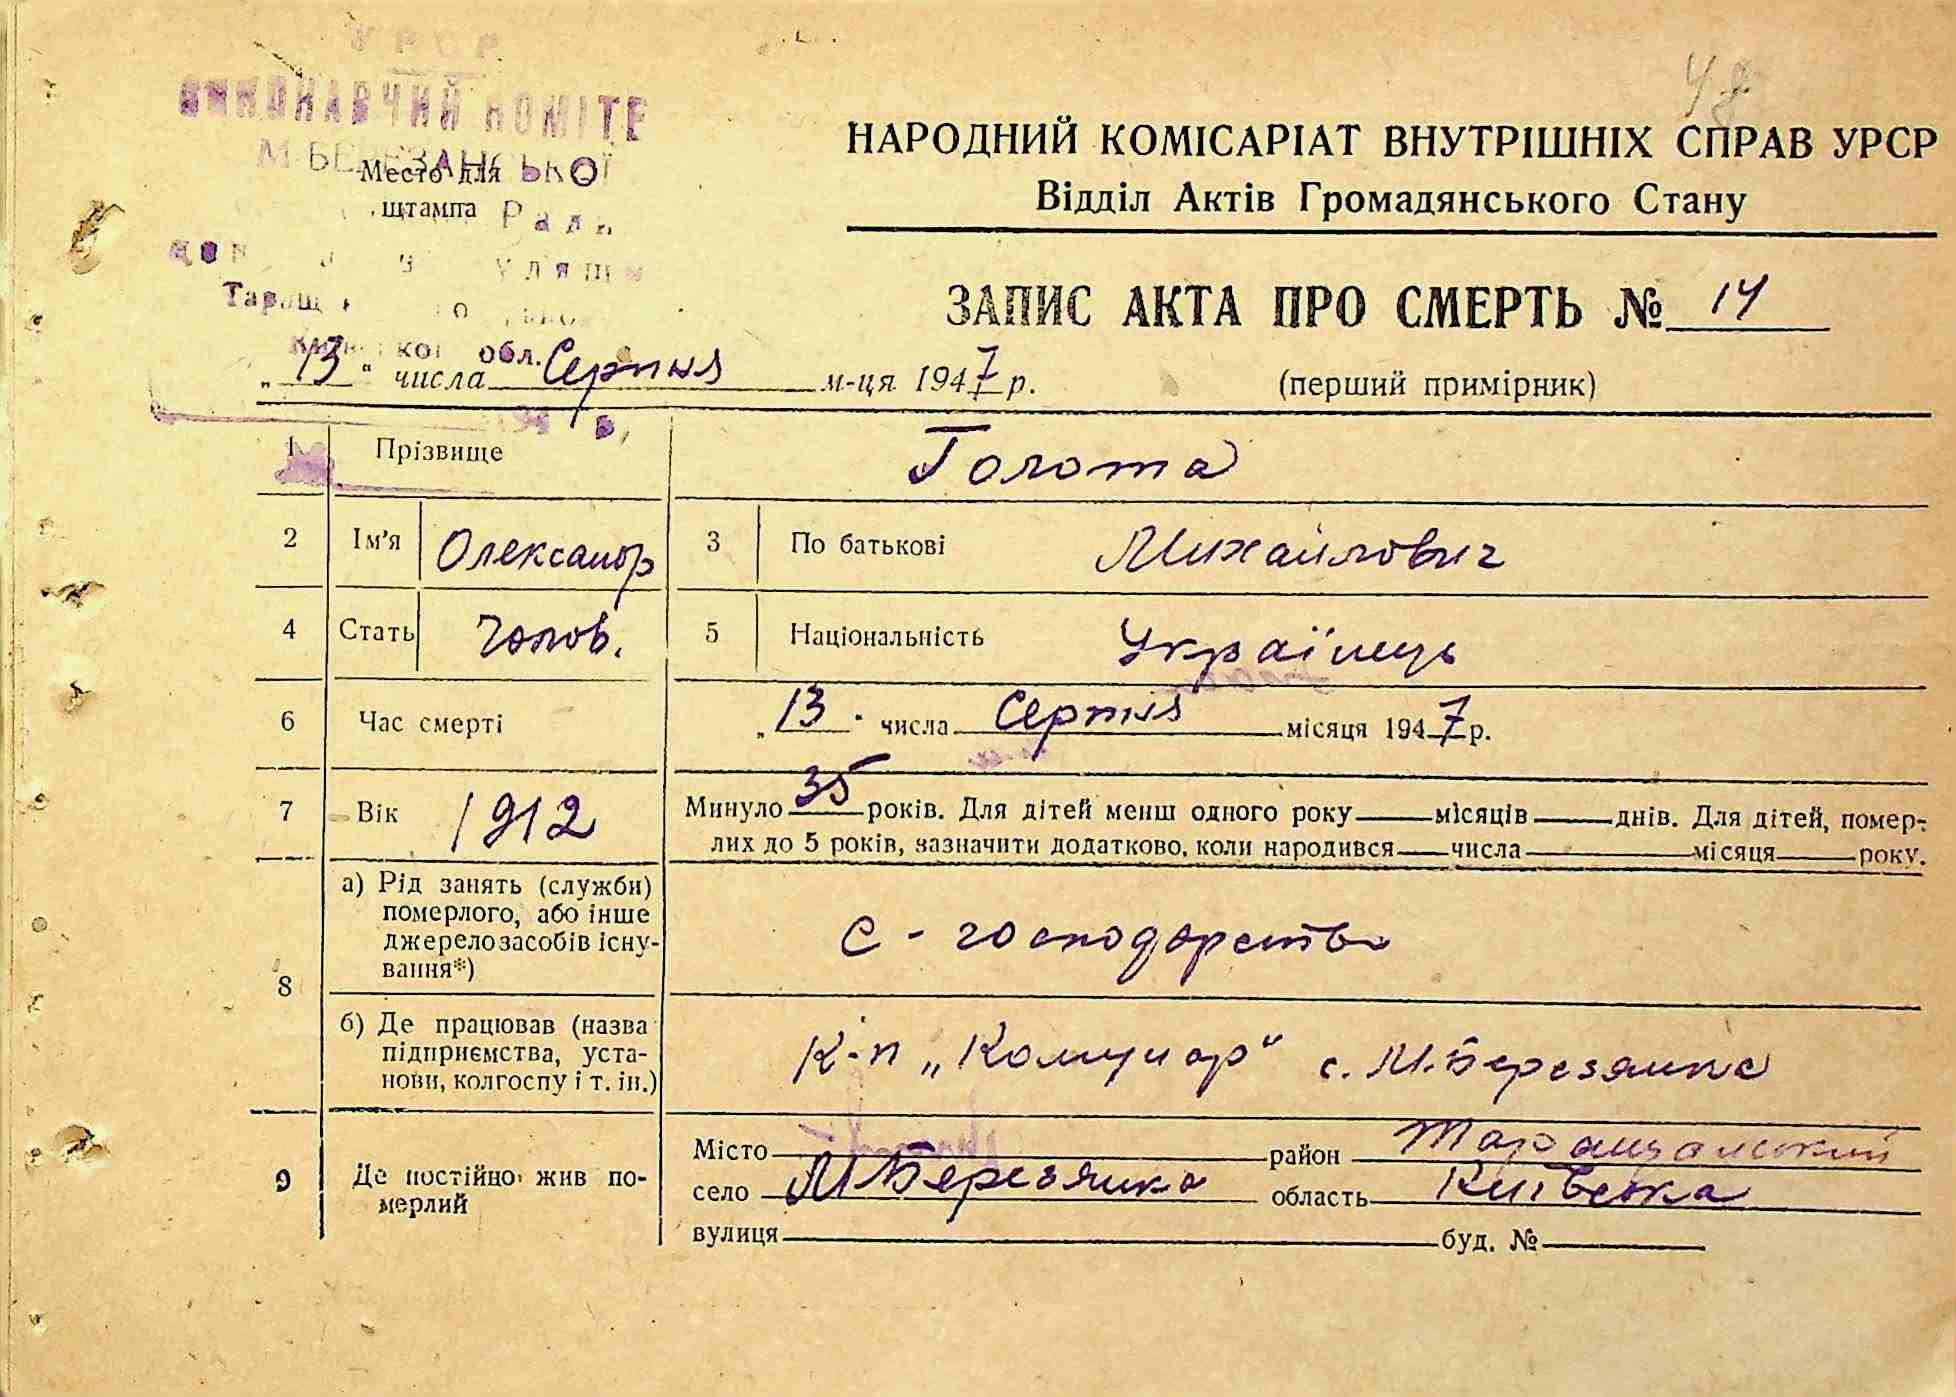 УРСР
ВИКОНАВЧИЙ КОМІТЕ
М-БЕРЕЗАНСЬКОЇ
Место для
штампа
Рад
обл.
48
НАРОДНИЙ КОМІСАРІАТ ВНУТРІШНІХ СПРАВ УРСР
Відділ Актів Громадянського Стану
ЗАПИС АКТА ПРО СМЕРТЬ № 14
„13“ числа Серпня м-ця 1947 р.
(перший примірник)
1 Прізвище Голота
2 Ім'я Олександр 3 По батькові Михайлович
4 Стать Чолов. 5 Національність Українець
6 Час смерті „13" числа Серпня місяця 1947 р.
7 Вік 1912 Минуло 35 років. Для дітей менш одного року місяців днів. Для дітей, помер-
лих до 5 років, зазначити додатково, коли народився числа місяця року.
8 а) Рід занять (служби)
померлого, або інше
джерело засобів існу-
вання*)
с-господарство
б) Де працював (назва
підприємства, уста-
нови, колгоспу і т. ін.)
к-п „Комунар“ с. М.Березянка
9 Де постійно жив по-
мерлий
Місто район Таращанський
село М Березянка область Київська
вулиця буд. №